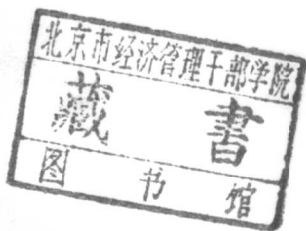 北京市经济管理干部学院
藏书
图书馆